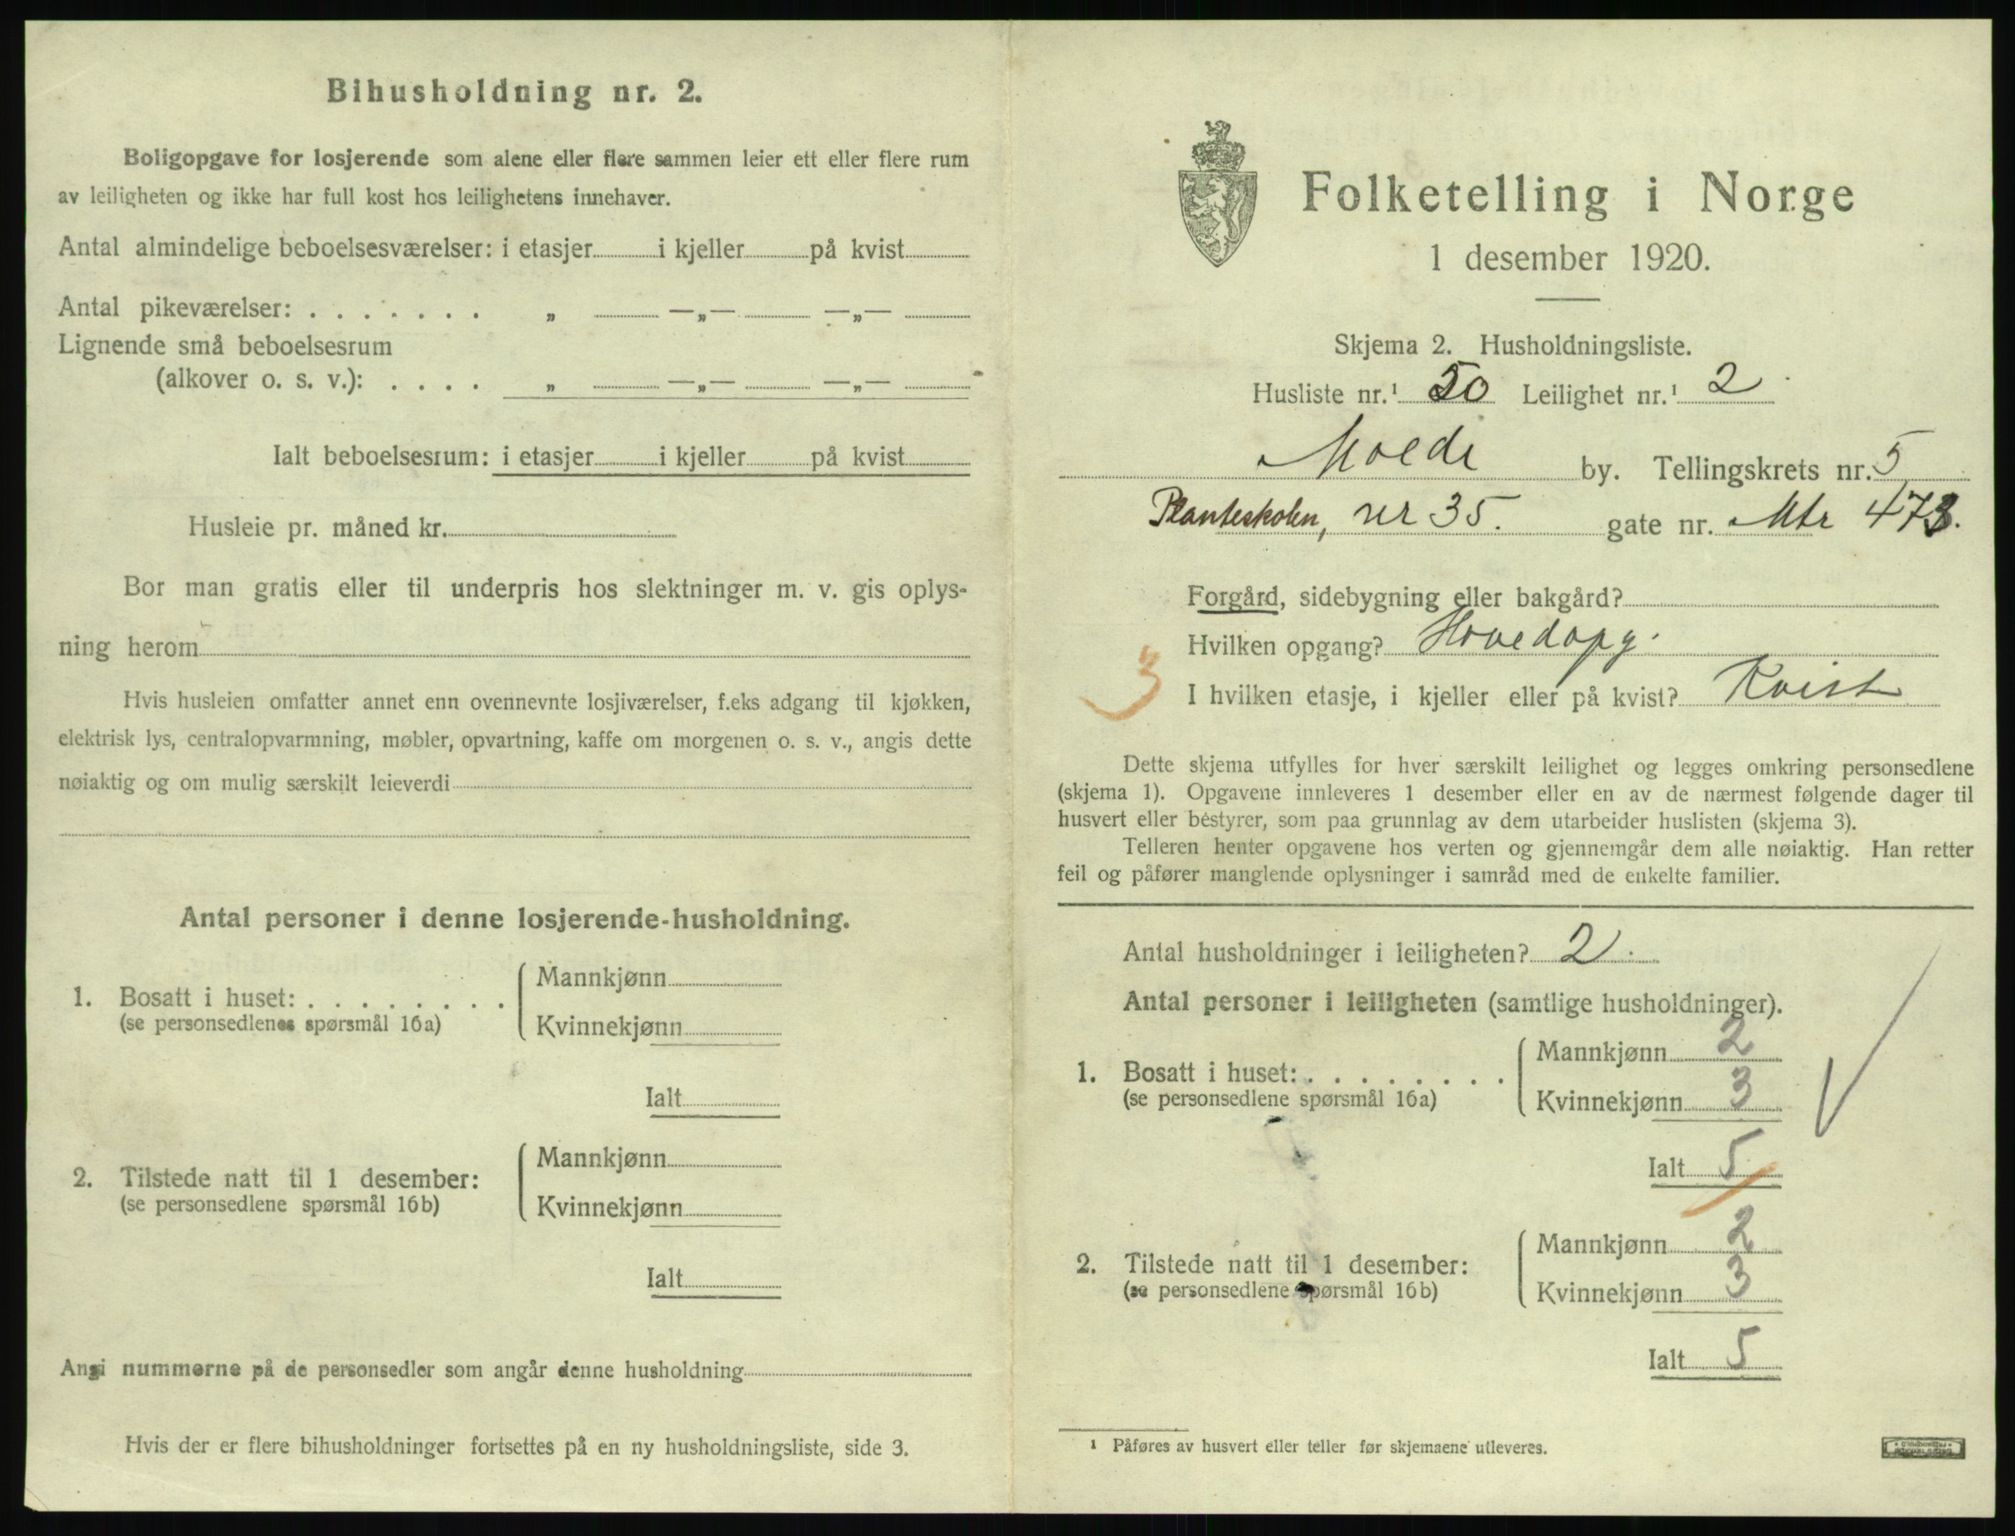 Bihusholdning nr. 2.
Boligopgave for losjerende som alene eller flere sammen leier ett eller flere rum
av leiligheten og ikke har full kost hos leilighetens innehaver.
Antal almindelige beboelsesværelser: i etasjer i kjeller på kvist
Antal pikeværelser: . . . . . . . „ —„— —„—
Lignende små beboelsesrum
(alkover o. s. v.): . . . . „ —„— —„—
Ialt beboelsesrum: i etasjer i kjeller på kvist
Husleie pr. måned kr.
Bor man gratis eller til underpris hos slektninger m. v. gis oplys-
ning herom
Hvis husleien omfatter annet enn ovennevnte losjiværelser, f.eks adgang til kjøkken,
elektrisk lys, centralopvarmning, møbler, opvartning, kaffe om morgenen o. s. v., angis dette
nøiaktig og om mulig særskilt leieverdi
Antal personer i denne losjerende-husholdning.
1. Bosatt i huset: . . . . . . . . Mannkjønn
(se personsedlenes spørsmål 16a) Kvinnekjønn
Ialt
2. Tilstede natt til 1 desember: Mannkjønn
(se personsedlene spørsmål 16b) Kvinnekjønn
Ialt
Angi nummerne på de personsedler som angår denne husholdning
Hvis der er flere bihusholdninger fortsettes på en ny husholdningsliste, side 3.
Folketelling i Norge
1 desember 1920.
Skjema 2. Husholdningsliste.
Husliste nr.¹ 50 Leilighet nr.¹ 2
Molde by. Tellingskrets nr. 5
Planteskolen, nr 35. gate nr. Mtr 473.
Forgård, sidebygning eller bakgård?
Hvilken opgang? Hovedopg.
3
I hvilken etasje, i kjeller eller på kvist? Kvist
Dette skjema utfylles for hver særskilt leilighet og legges omkring personsedlene
(skjema 1). Opgavene innleveres 1 desember eller en av de nærmest følgende dager til
husvert eller bestyrer, som paa grunnlag av dem utarbeider huslisten (skjema 3).
Telleren henter opgavene hos verten og gjennemgår dem alle nøiaktig. Han retter
feil og påfører manglende oplysninger i samråd med de enkelte familier.
Antal husholdninger i leiligheten? 2.
Antal personer i leiligheten (samtlige husholdninger).
1. Bosatt i huset: . . . . . . . . Mannkjønn 2
(se personsedlene spørsmål 16a) Kvinnekjønn 3
Ialt 5
2. Tilstede natt til 1 desember: Mannkjønn 2
(se personsedlene spørsmål 16b) Kvinnekjønn 3
Ialt 5
¹ Påføres av husvert eller teller før skjemaene utleveres.